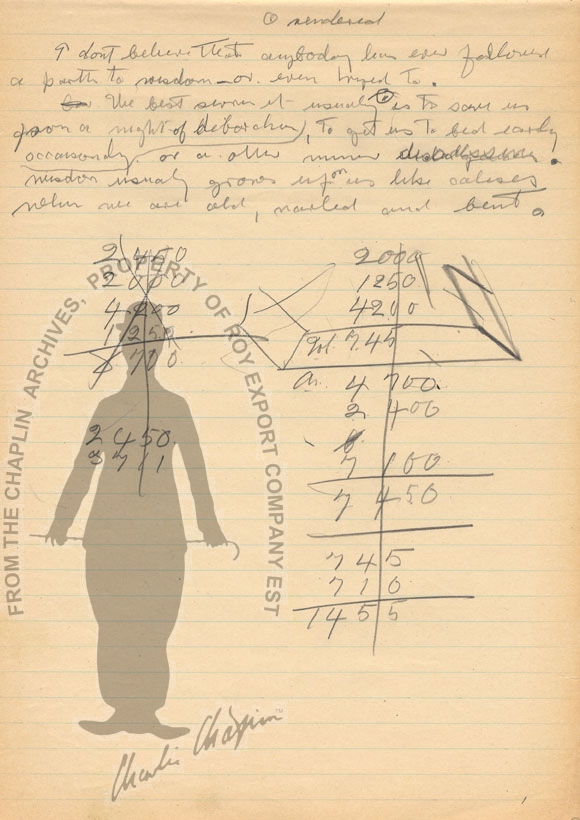 ① rendered
I dont believe that anybody has ever followed
a path to wisdom — or even tryed to.
The best service it usually is to save us
from a night of debauchery, to get us to bed early
occasionaly, or a other minor
wisdom usually grows upon us like calluses
when we are old, narled and bent.
2450
2000
4200
1250
700
2450.
3711
2000
1250
4200
7.45
4 700.
2 400
7 100
7 450
745
710
1455
FROM THE CHAPLIN ARCHIVES, PROPERTY OF ROY EXPORT COMPANY EST
Charlie Chaplin™